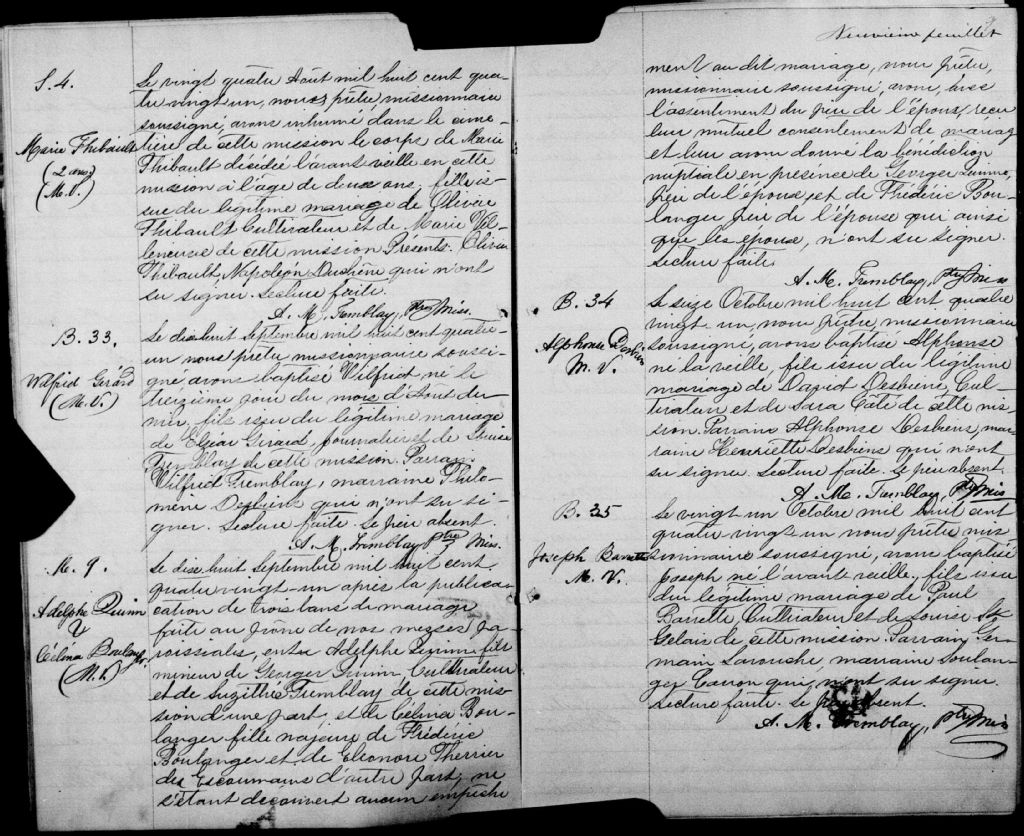 S. 4.
Marie Thibault
(2 ans)
(M.V.)
Le vingt quatre Août mil huit cent qua-
tre vingt un, nous prêtre missionnaire
soussigné, avons inhumé dans le cime-
tière de cette mission le corps de Marie
Thibault décédée l'avant veille en cette
mission à l'âge de deux ans, fille is-
sue du légitime mariage de Olivier
Thibault Cultivateur et de Marie Vil-
leneuve de cette mission Présents: Olivier
Thibault, Napoléon Duchêne qui n'ont
su signer. Lecture faite.
A. M. Tremblay, Ptre Miss.
B. 33.
Wilfrid Girard
(M.V.)
Le dix huit septembre mil huit cent quatre-
un nous prêtre missionnaire soussi-
gné avons baptisé Wilfrid, né le
treizième jour du mois d'Août der-
nier, fils issu du légitime mariage
de Elgéar Girard, Journalier et de Louise
Tremblay de cette mission. Parrain
Wilfrid Tremblay, marraine Philo-
mène Desbiens qui n'ont su si-
gner. Lecture faite. Le père absent.
A. M. Tremblay Ptre Miss.
M. 9.
Adelphe Quinn
&
Célina Boulanger
(M.V.)
Le dix huit septembre mil huit cent
quatre vingt-un après la publica-
cation de trois bans de mariage
faite au prône de nos messes pa-
roissiales, entre Adelphe Quinn fils
mineur de Georges Quinn, Cultivateur
et de Suzithé Tremblay de cette mis-
sion d'une part, et de Célina Bou-
langer fille majeure de Fréderic
Boulanger et de Eleonore Therrier
des Escoumains d'autre part, ne
s'étant découvert aucun empêche
Neuvième feuillet
9
ment au dit mariage, nous prêtre,
missionnaire soussigné, avons, avec
l'assentiment du père de l'époux, reçu
leur mutuel consentement de mariage
et leur avons donné la bénédiction
nuptiale en présence de Georges Quinn,
père de l'époux, et de Fréderic Bou-
langer père de l'épouse qui ainsi
que les époux, n'ont su signer.
Lecture faite.
A. M. Tremblay, Ptre Miss
B. 34
Alphonse Desbiens
M. V.
Le seize Octobre mil huit cent quatre
vingt-un, nous prêtre, missionnaire
soussigné, avons baptisé Alphonse
né la veille, fils issu du légitime
mariage de David Desbiens, Cul-
tivateur et de Sara Côté de cette mis-
sion. Parrain Alphonse Desbiens, mar-
raine Henriette Desbiens qui n'ont
su signer. Lecture faite. Le père absent.
A. M. Tremblay, Ptre Miss
B. 35
Joseph Barrette
M. V.
Le vingt un Octobre mil huit cent
quatre vingt-un nous prêtre mis
sionnaire soussigné, avons baptisé
Joseph né l'avant veille, fils issu
du légitime mariage de Paul
Barrette, Cultivateur et de Louise St
Gelais de cette mission. Parrain Ger-
main Larouche, marraine Soulan-
ges Caron qui n'ont su signer.
Lecture faite. Le père absent.
A. M. Tremblay, Ptre Miss